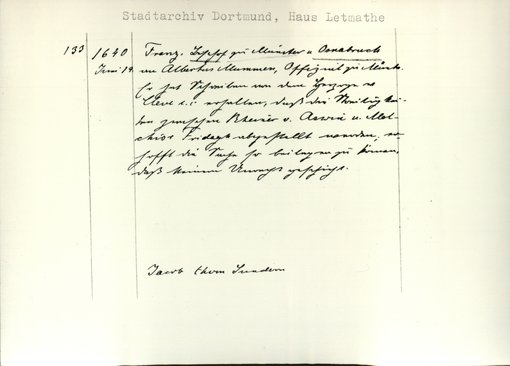 Stadtarchiv Dortmund, Haus Letmathe
133 1640 Franz. Bischof zu Münster u Osnabrück
Juni 19. an Albertus Mummen, Offizial zu Münster.
Er hat Schreiben von dem Herzoge v.
Cleve erhalten, daß die Streitigkei-
ten zwischen Rheiner v. u. Mel-
chior Fridagh abgestellt werden, er
hofft die Sache so beilegen zu können,
daß keinem Unrecht geschieht.
Jacob thom Sundern